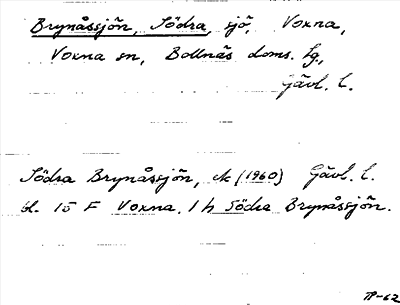 Brynåssjön, Södra, sjö, Voxna,
Voxna sn, Bollnäs doms. tg.,
Gävl. l.
Södra Brynåssjön, ek (1960) Gävl. l.
bl. 15 F Voxna. 1 h Södra Brynåssjön.
TP-62